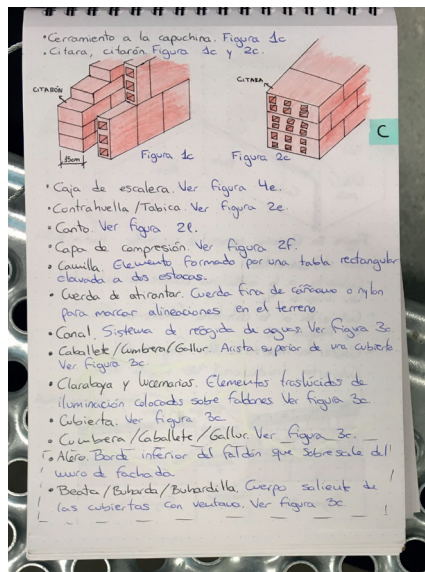 • Cerramiento a la capuchina. Figura 1c
• Citara, citarón. Figura 1c y 2c.
CITARÓN
CITARA
C
15cm
Figura 1c
Figura 2c
• Caja de escalera. Ver figura 4e.
• Contrahuella /Tabica. Ver figura 2e.
• Canto. Ver figura 2l.
• Capa de compresión. Ver figura 2f.
• Camilla. Elemento formado por una tabla rectangular
clavada a dos estacas.
• Cuerda de atirantar. Cuerda fina de cáñamo o nylon
para marcar alineaciones en el terreno.
• Canal. Sistema de recogida de aguas. Ver figura 3c.
• Caballete /Cumbrera/Gallur. Arista superior de una cubierta.
Ver figura 3c.
• Claraboya y lucernarias. Elementos traslúcidos de
iluminación colocados sobre faldones. Ver figura 3c
• Cubierta. Ver figura 3c
• Cumbrera /Caballete /Gallur. Ver figura 3c.
• Alero. Borde inferior del faldón que sobresale del
muro de fachada.
• Beata /Buharda /Buhardilla. Cuerpo saliente de
las cubiertas con ventana. Ver figura 3c